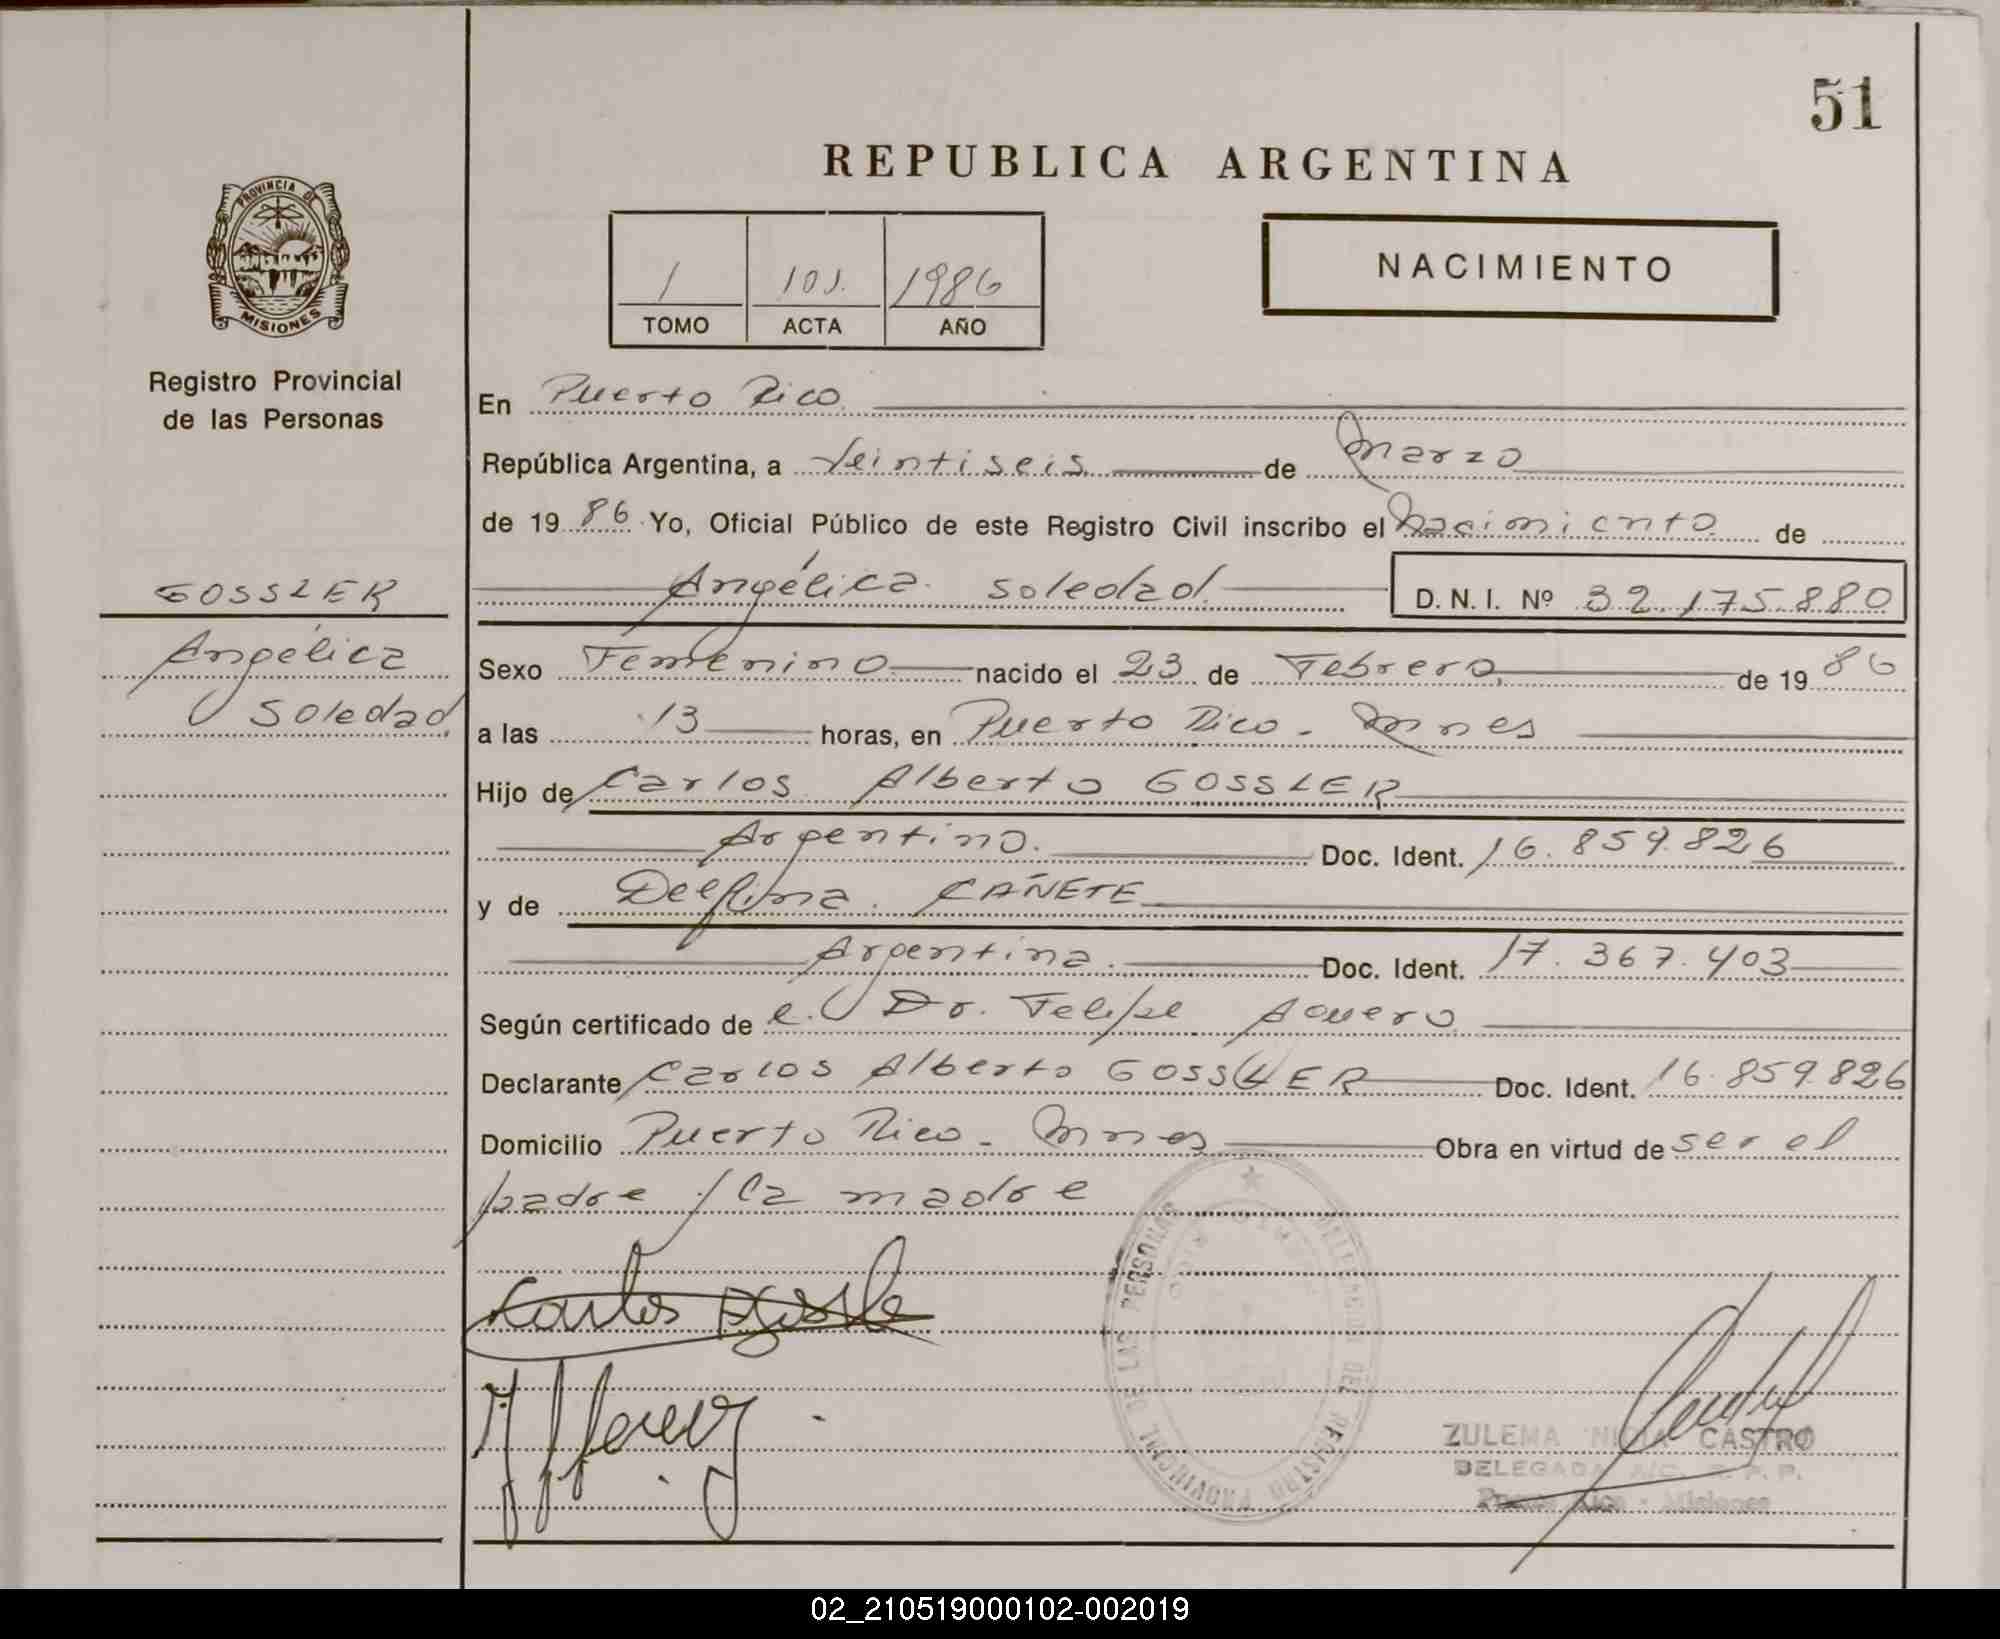 51
REPUBLICA ARGENTINA
PROVINCIA DE
MISIONES
1 101. 1986
TOMO ACTA AÑO
NACIMIENTO
Registro Provincial
de las Personas
En Puerto Rico
República Argentina, a Veintiseis de Marzo
de 19 86 Yo, Oficial Público de este Registro Civil inscribo el Nacimiento de
GOSSLER
Angélica Soledad
Angélica Soledad D. N. I. Nº 32.175.880
Sexo Femenino nacido el 23 de Febrero de 19 86
a las 13 horas, en Puerto Rico - Mnes
Hijo de Carlos Alberto GOSSLER
Argentino. Doc. Ident. 16.859.826
y de Delfina CAÑETE
Argentina. Doc. Ident. 17.367.403
Según certificado de Dr. Felipe
Declarante Carlos Alberto GOSSLER Doc. Ident. 16.859.826
Domicilio Puerto Rico - Mnes Obra en virtud de ser el
padre / la madre
Carlos
DELEGACION DEL REGISTRO PROVINCIAL DE LAS PERSONAS
ZULEMA NIDIA CASTRO
DELEGADA A/C. R. P. P.
Puerto Rico - Misiones
02_210519000102-002019